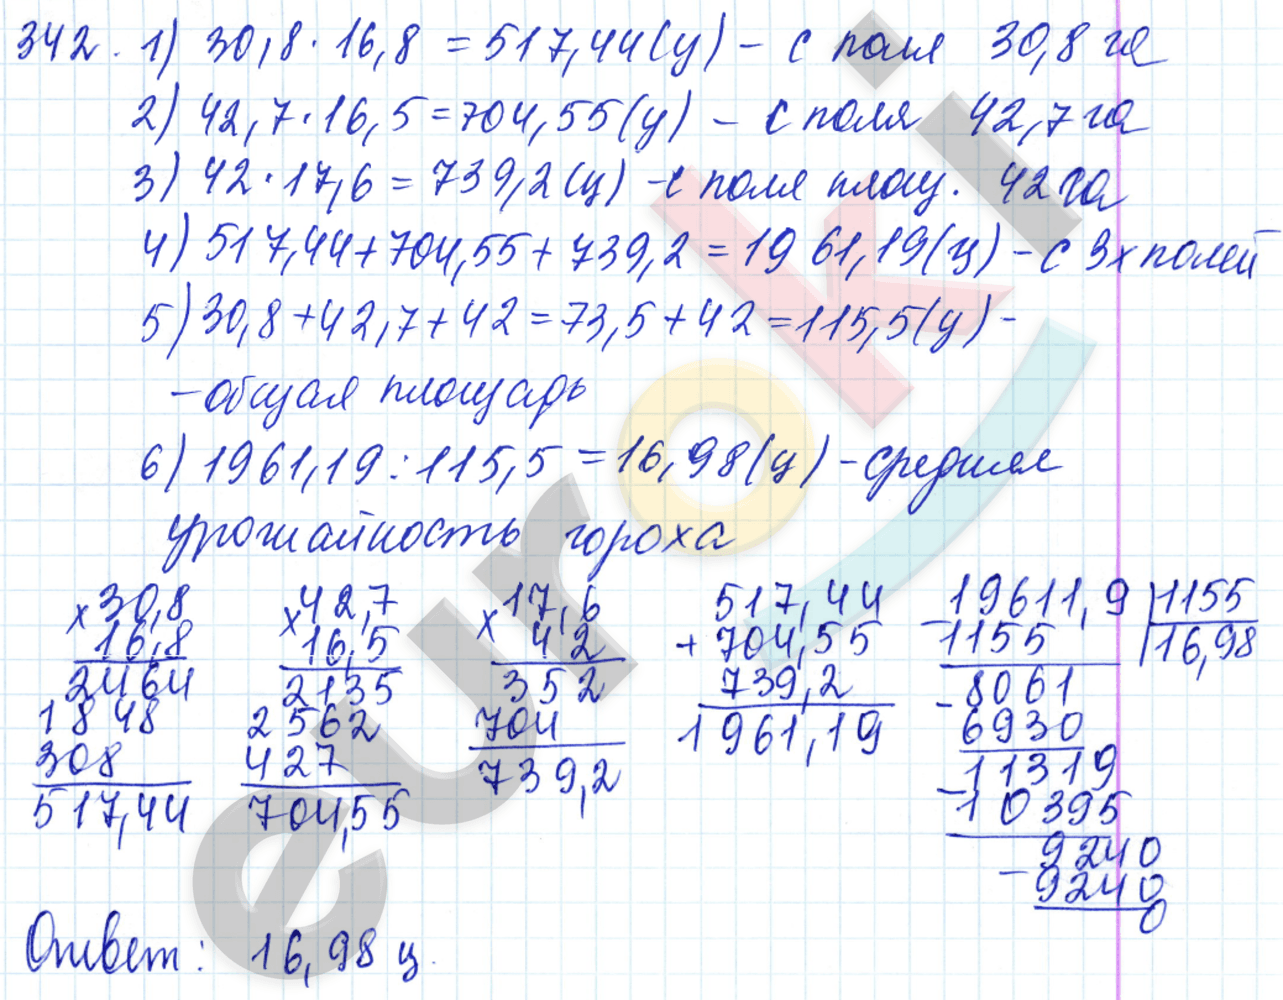 342. 1) 30,8 · 16,8 = 517,44(ц) – с поля 30,8 га
2) 42,7 · 16,5 = 704,55(ц) – с поля 42,7 га
3) 42 · 17,6 = 739,2(ц) – с поля площ. 42 га
4) 517,44 + 704,55 + 739,2 = 1961,19(ц) – с 3х полей
5) 30,8 + 42,7 + 42 = 73,5 + 42 = 115,5(ц) –
– общая площадь
6) 1961,19 : 115,5 = 16,98(ц) – средняя
урожайность гороха
× 30,8
16,8
2464
1848
308
517,44
× 42,7
16,5
2135
2562
427
704,55
× 17,6
42
352
704
739,2
517,44
+ 704,55
739,2
1961,19
– 19611,9 | 1155
1155 | 16,98
– 8061
6930
– 11319
10395
– 9240
9240
0
Ответ: 16,98 ц.
euroki